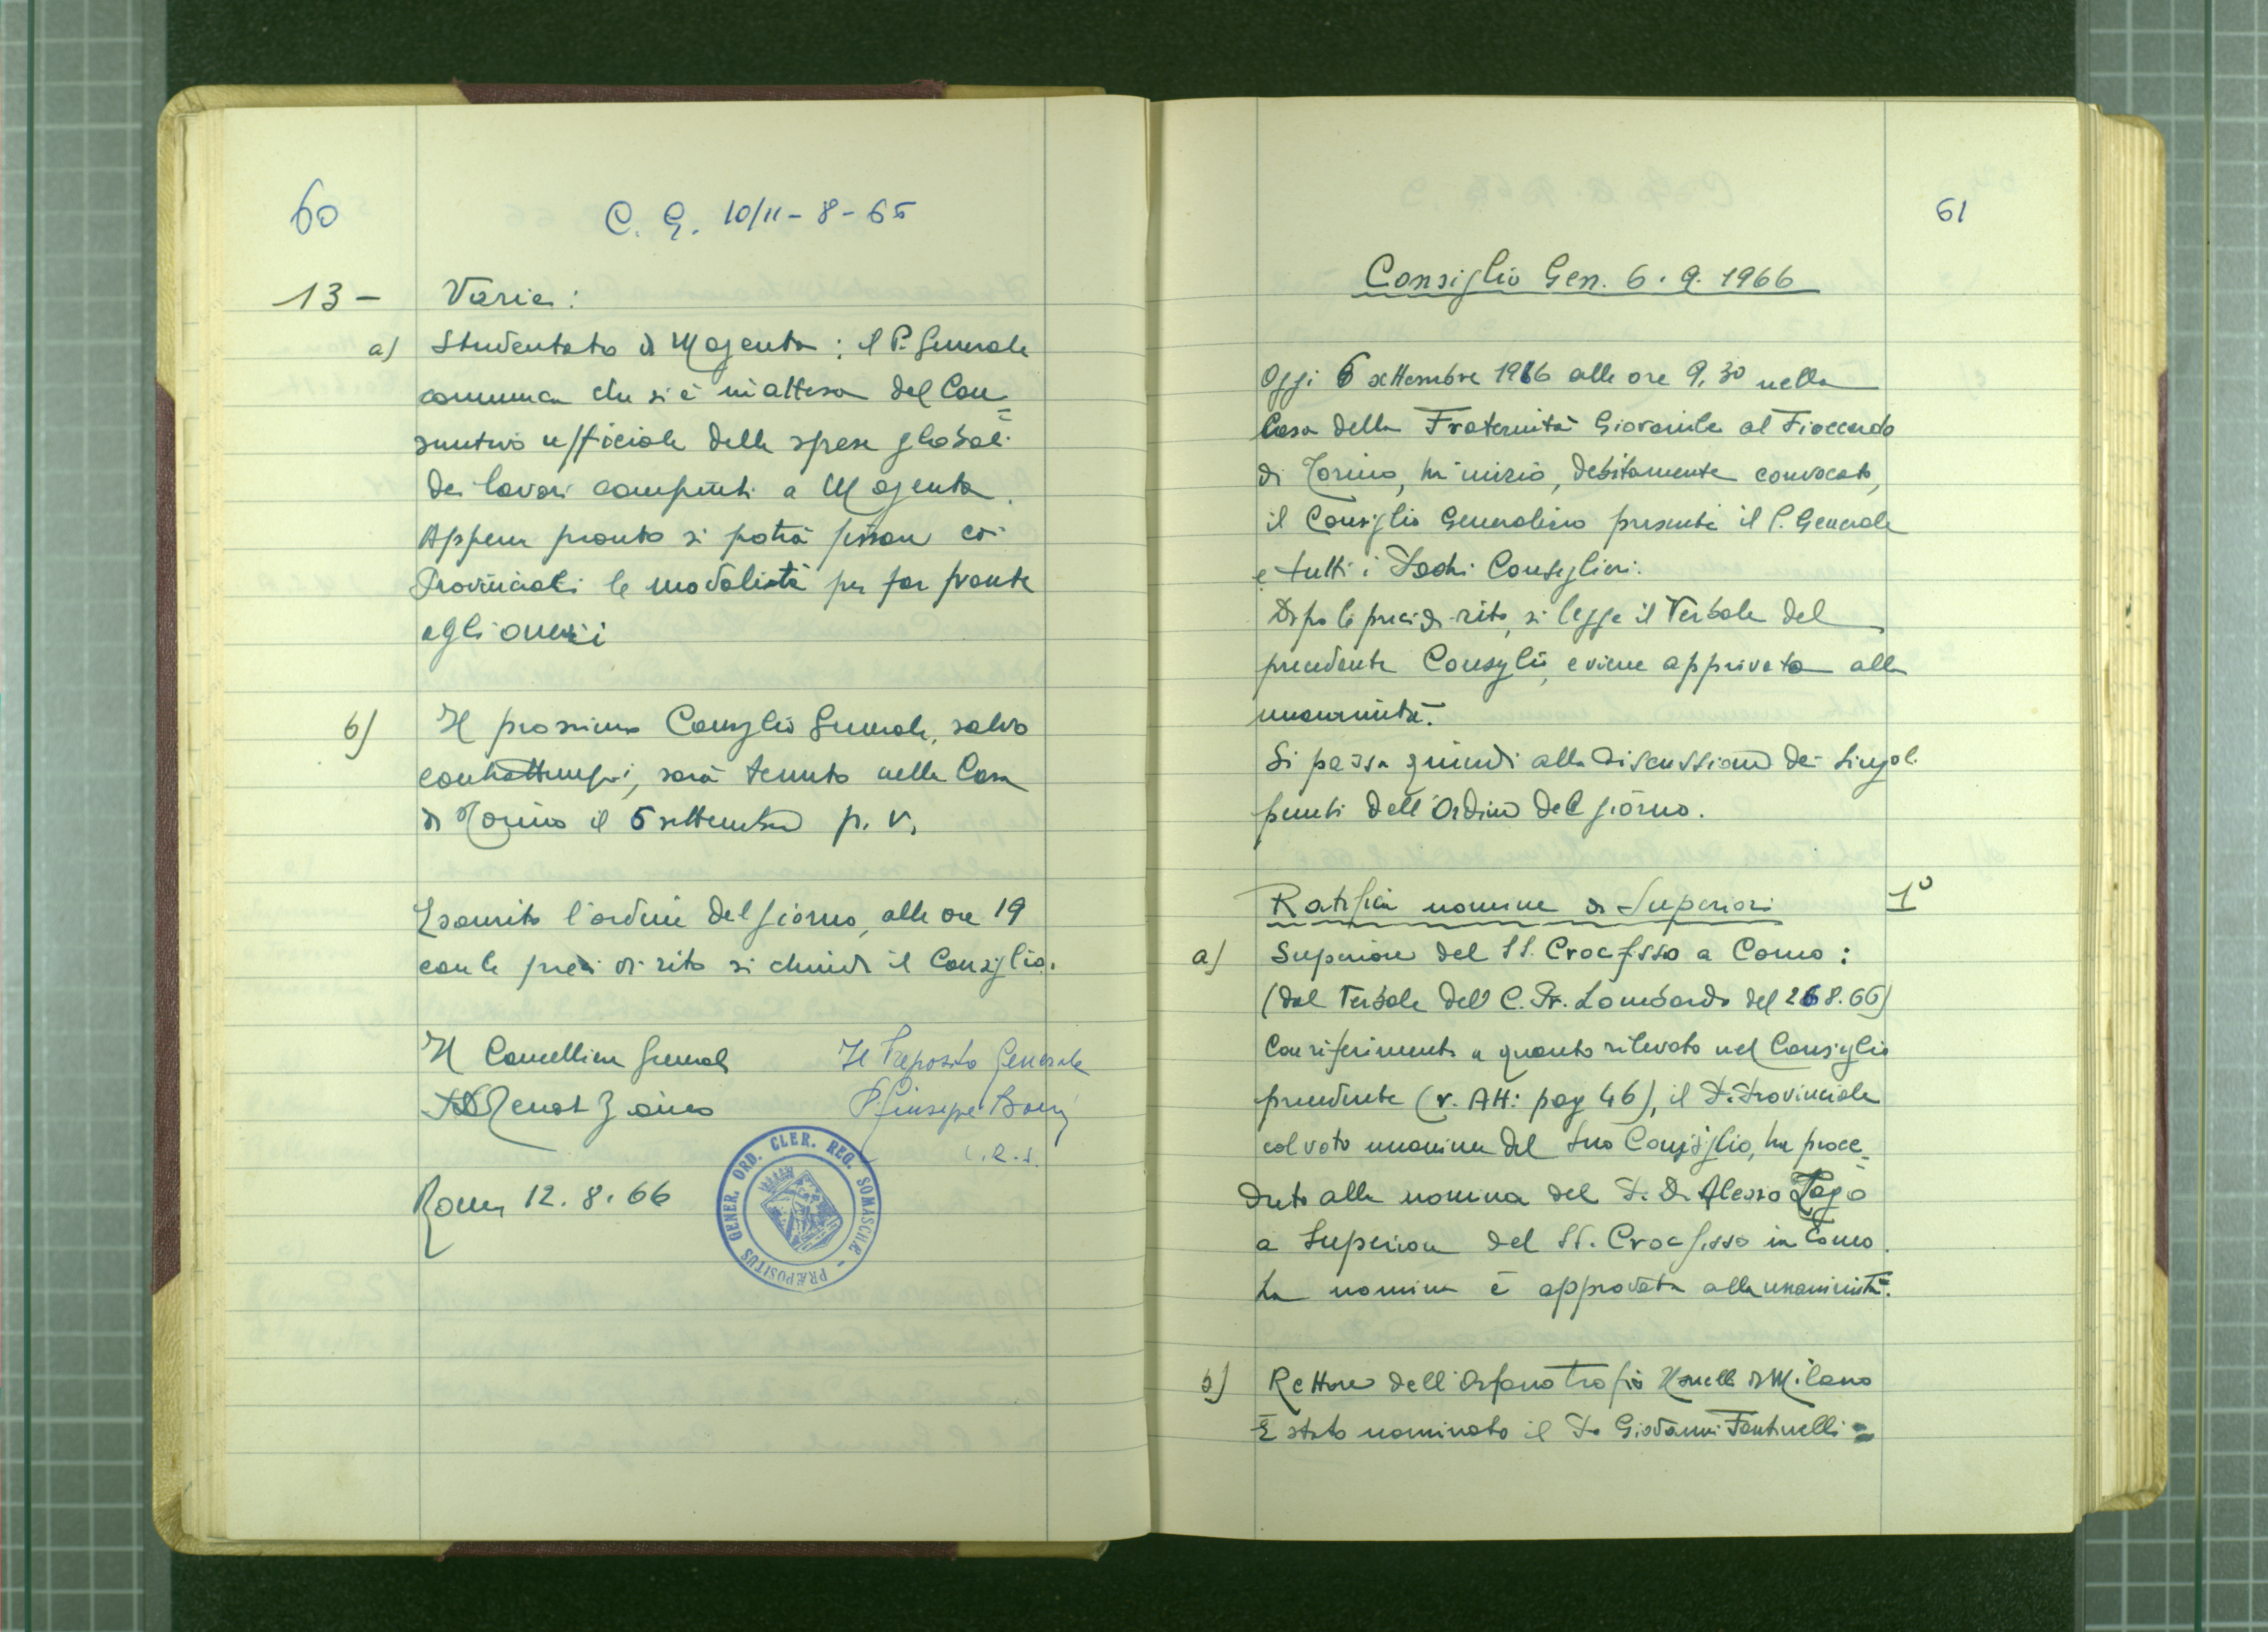 60
C. G. 10/11 - 8 - 66
13 - Varie:
a) Studentato di Magenta: il P. Generale
comunica che si è in attesa del Con=
suntivo ufficiale delle spese globali
dei lavori compiuti a Magenta.
Appena pronto si potrà fissare coi
Provinciali le modalità per far fronte
agli oneri
b) Il prossimo Consiglio Generale, salvo
contrattempi, sarà tenuto nella Casa
di Torino il 5 settembre p. v.
Esaurito l'ordine del giorno, alle ore 19
con le preci di rito si chiude il Consiglio.
Il Cancelliere Generale
Il Preposito Generale
P. Giuseppe
c. r. s.
Roma 12. 8. 66
PRÆPOSITUS GENER. ORD. CLER. REG. SOMASCHÆ -
61
Consiglio Gen. 6. 9. 1966
Oggi 6 settembre 1966 alle ore 9,30 nella
Casa della Fraternità Giovanile al Fioccardo
di Torino, ha inizio, debitamente convocato,
il Consiglio Generalizio presenti il P. Generale
e tutti i Padri Consiglieri.
Dopo le preci di rito, si legge il Verbale del
precedente Consiglio, e viene approvato alla
unanimità.
Si passa quindi alla discussione dei singoli
punti dell'Ordine del giorno.
Ratifica nomine di Superiori 1°
a) Superiore del SS. Crocifisso a Como:
(dal Verbale del C. Pr. Lombardo del 26 8. 66)
Con riferimento a quanto rilevato nel Consiglio
precedente (v. Atti pag 46), il P. Provinciale
col voto unanime del suo Consiglio, ha proce=
duto alla nomina del P. D. Alessio
a Superiore del SS. Crocifisso in Como.
La nomina è approvata alla unanimità.
b) Rettore dell'Orfanotrofio Usuelli di Milano
È stato nominato il P. Giovanni Fantinelli =